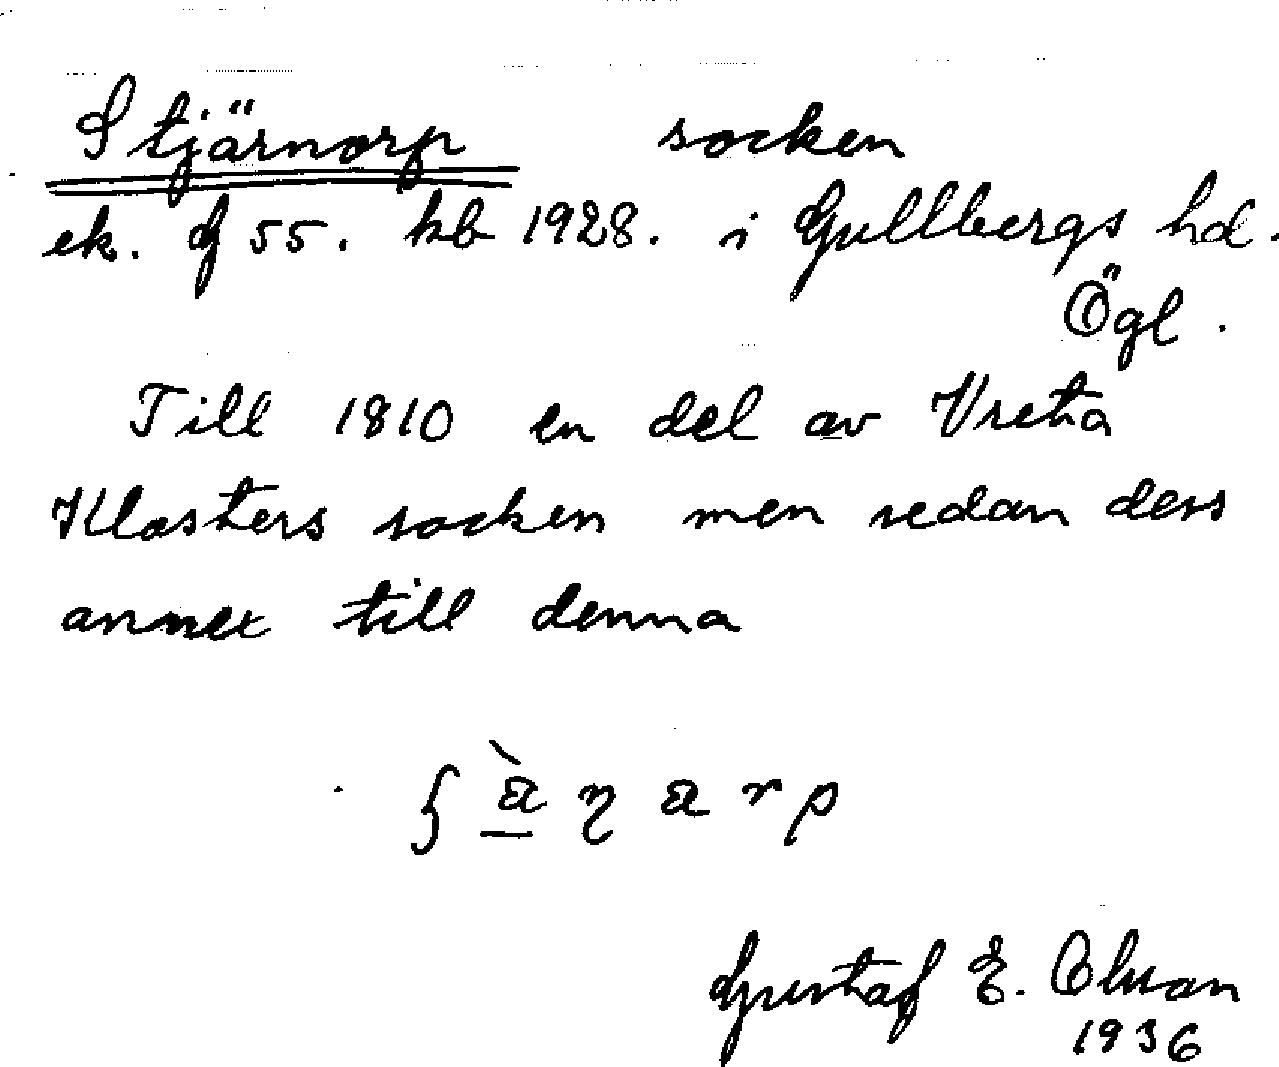 Stjärnorp socken
ek. J 55. kb 1928. i Gullbergs hd.
Ögl.
Till 1810 en del av Vreta
Klosters socken men sedan dess
annex till denna
Gustaf E. Olsson
1936